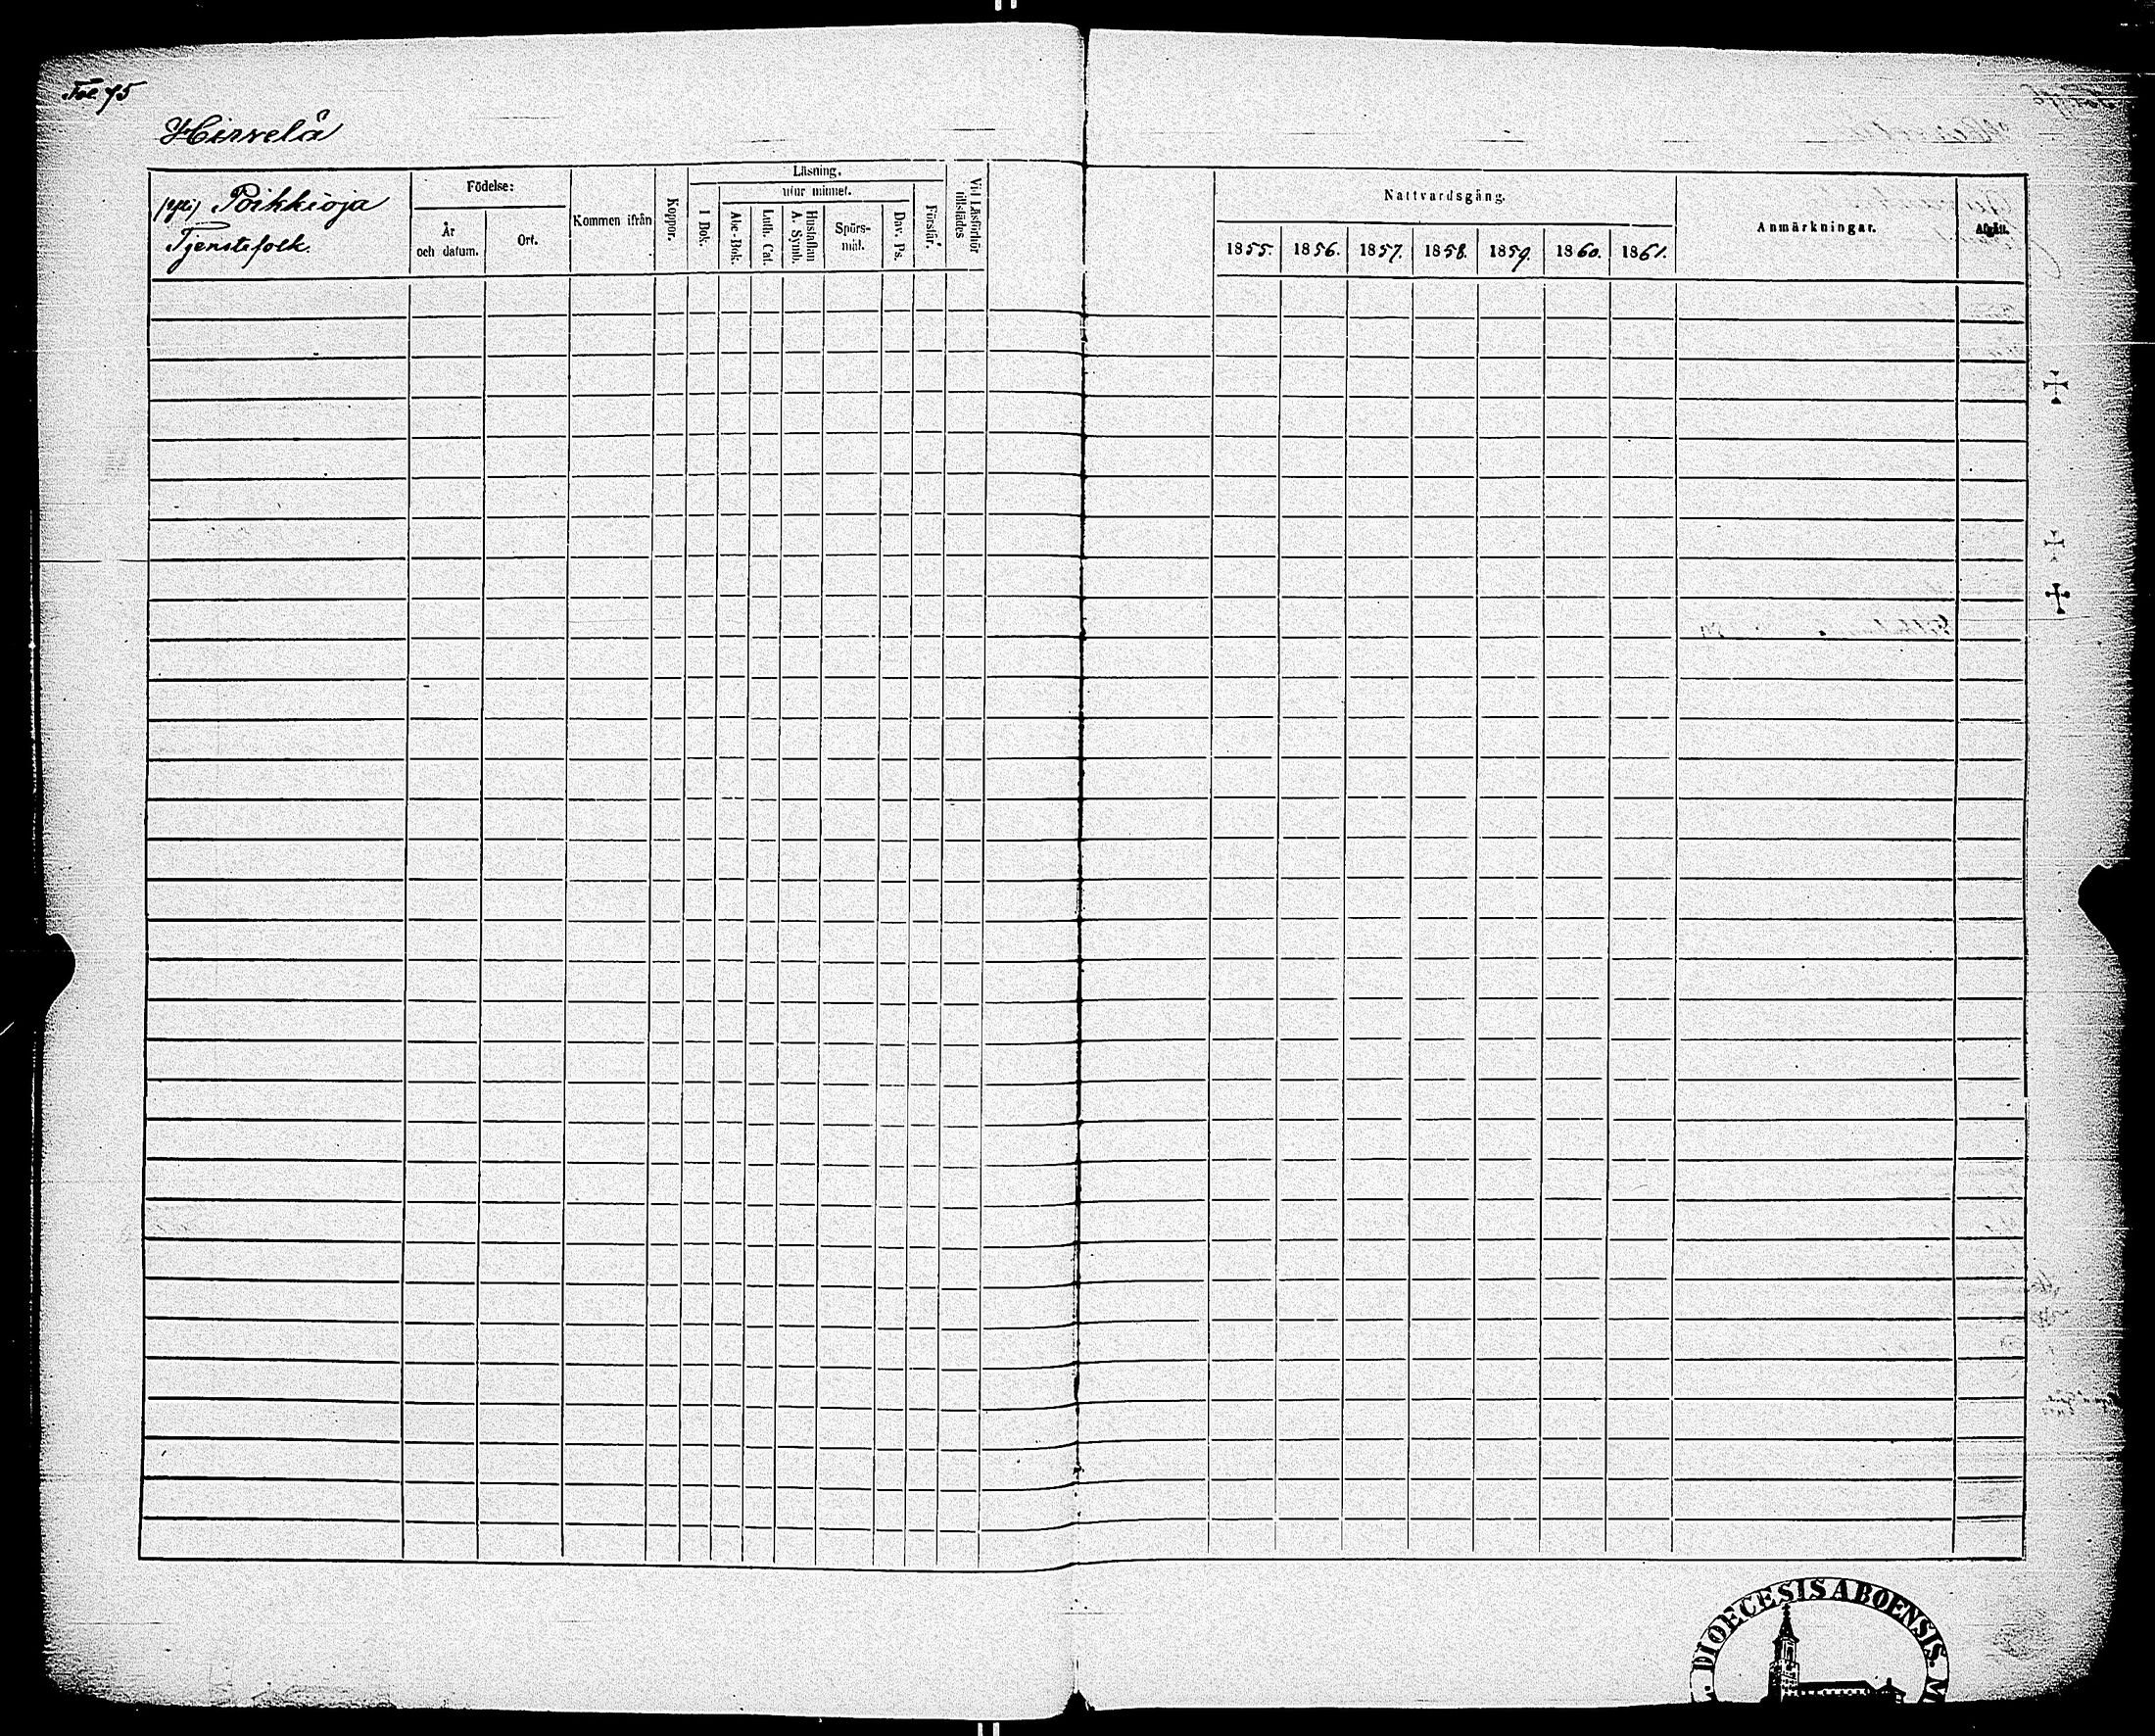 Fol. 75
Hirvelä
Poikkioja
Tjenstefolk.
Födelse:
År
och datum.
Ort.
Kommen ifrån
Koppor.
Läsning.
utur minnet.
I Bok.
Abc-Bok.
Luth. Cat.
Hustaflan
A. Symb.
Spörs-
mål.
Dav. Ps.
Förstår.
Vid Läsförhör
tillstädes
Nattvardsgång.
1855.
1856.
1857.
1858.
1859.
1860.
1861.
Anmärkningar.
Afgått.
DIOECESIS ABOENSIS. M